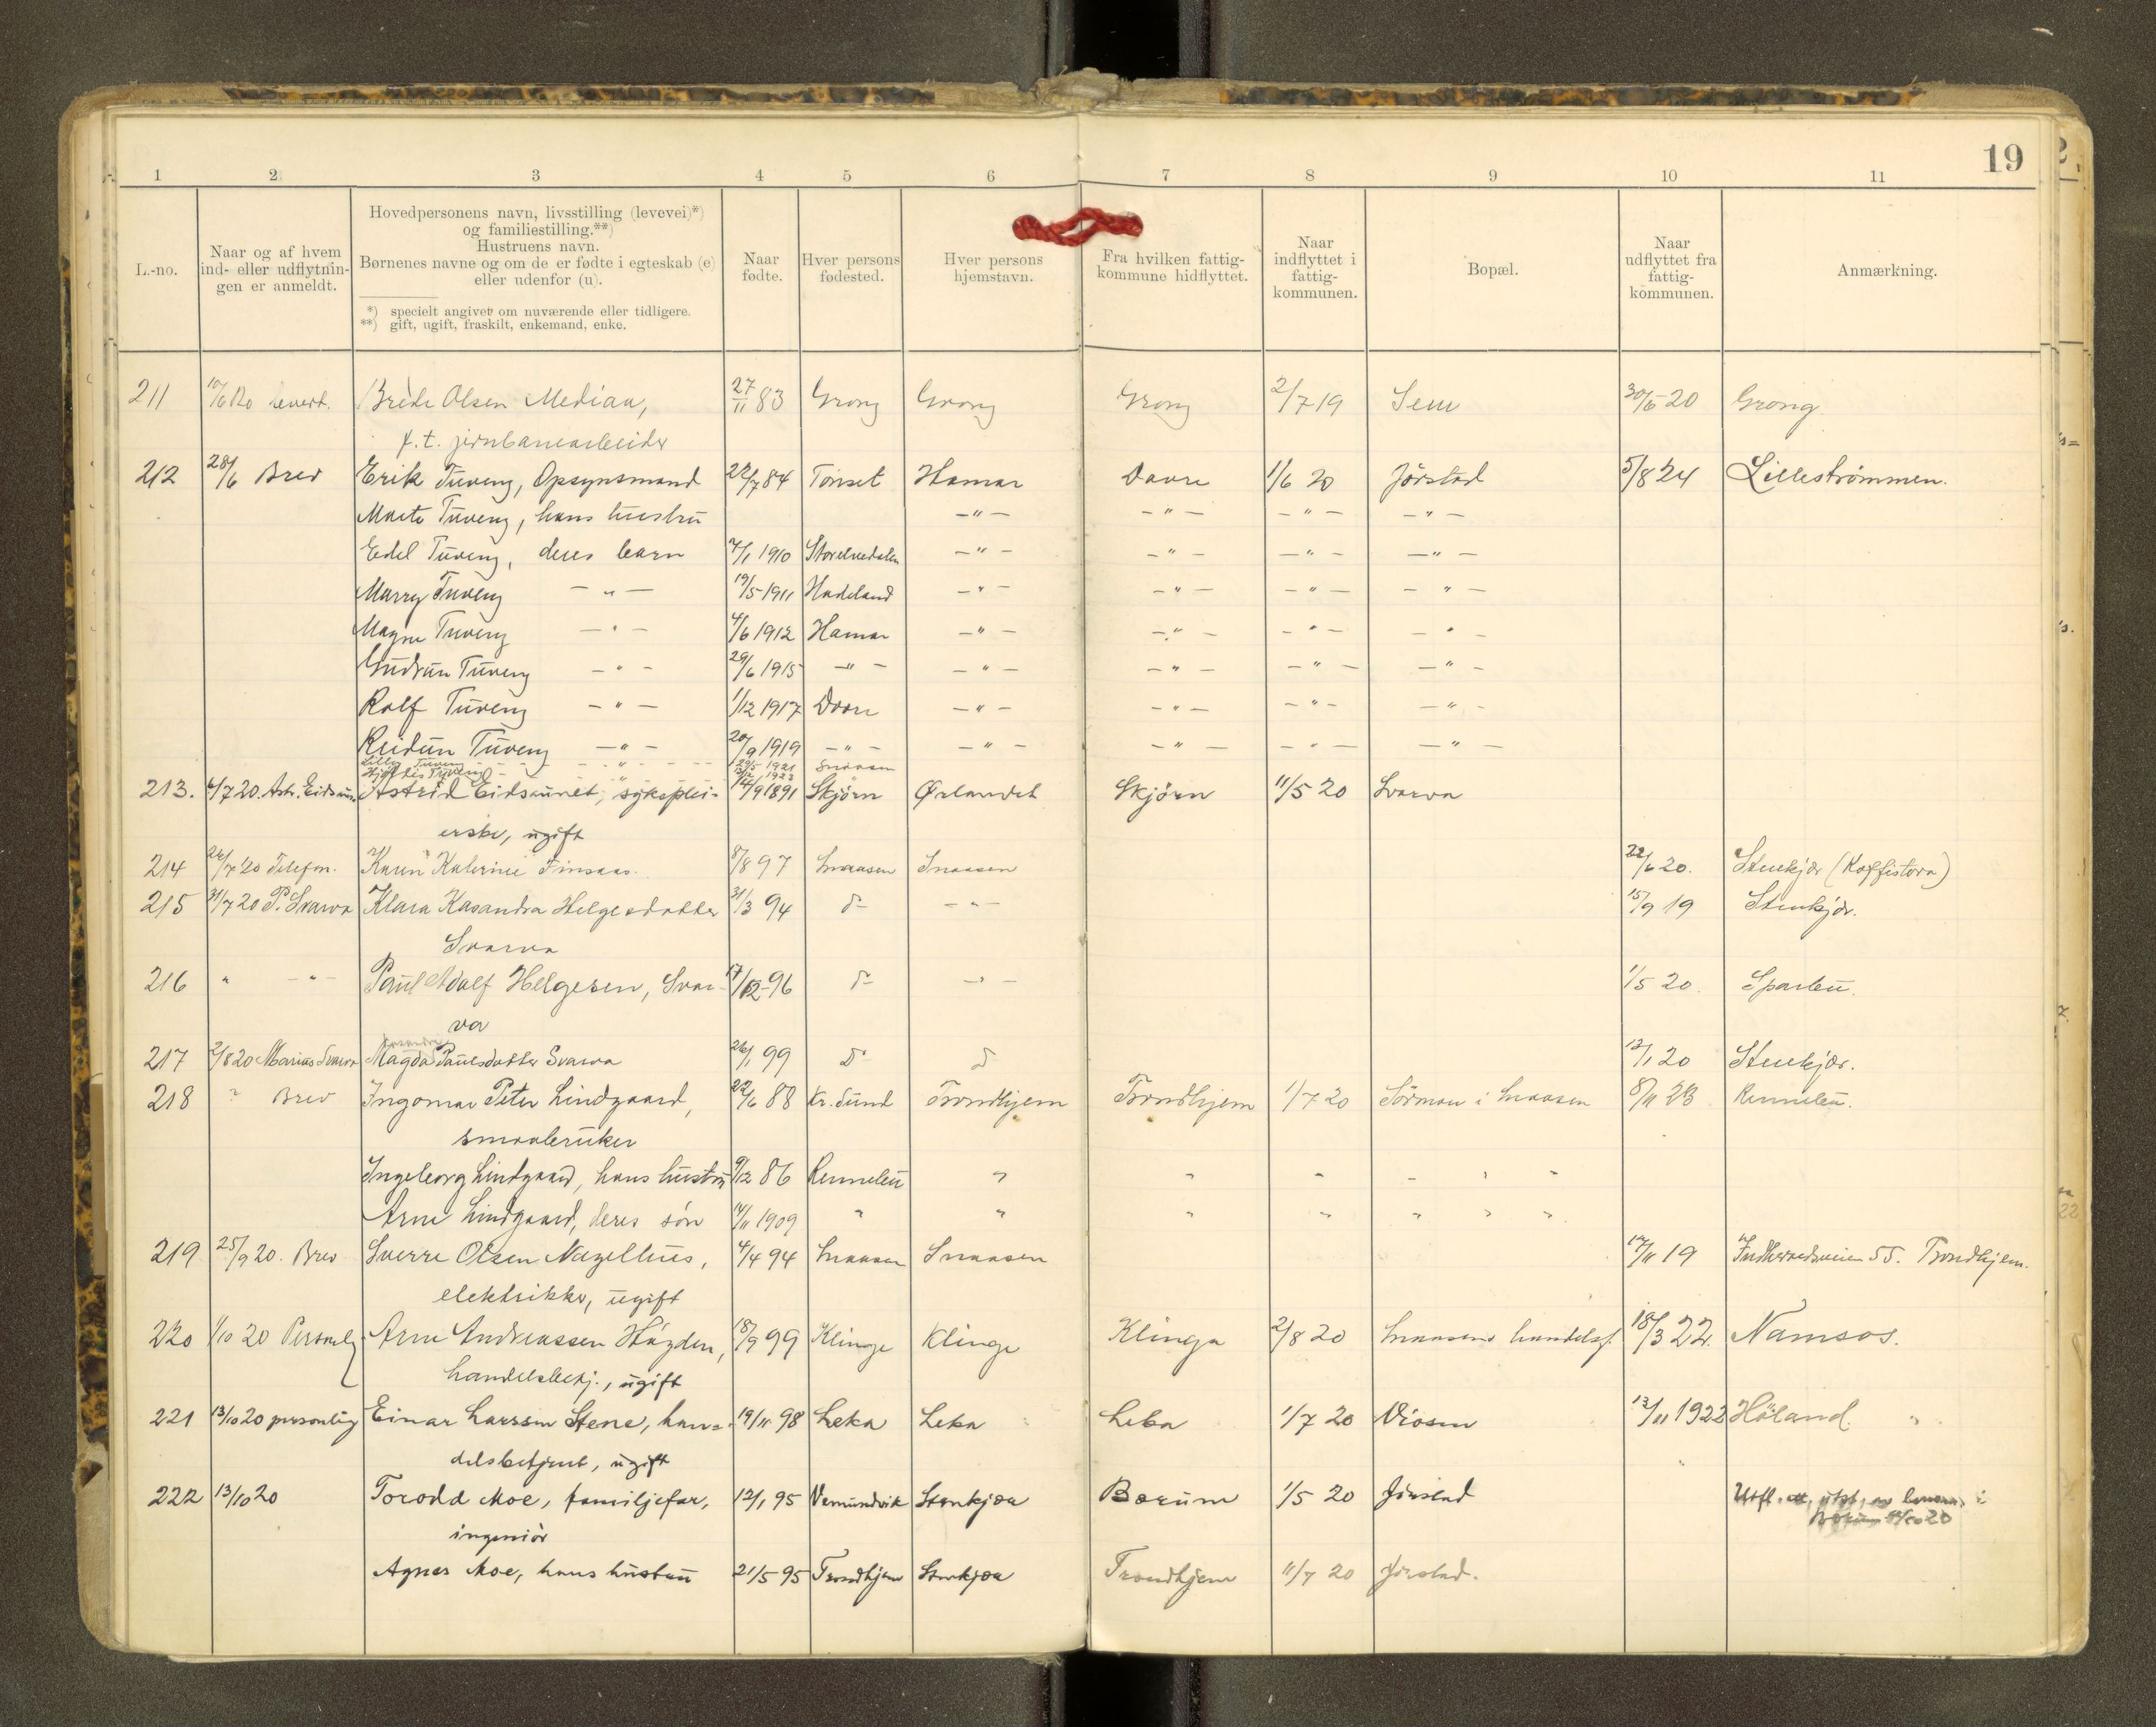 19
1 2 3 4 5 6 7 8 9 10 11
L.-no.
Naar og af hvem
ind- eller udflytnin-
gen er anmeldt.
Hovedpersonens navn, livsstilling (levevei)*)
og familiestilling.**)
Hustruens navn.
Børnenes navne og om de er fødte i egteskab (e)
eller udenfor (u).
*) specielt angivet om nuværende eller tidligere.
**) gift, ugift, fraskilt, enkemand, enke.
Naar
fødte.
Hver persons
fødested.
Hver persons
hjemstavn.
Fra hvilken fattig-
kommune hidflyttet.
Naar
indflyttet i
fattig-
kommunen.
Bopæl.
Naar
udflyttet fra
fattig-
kommunen.
Anmærkning.
211 Brede Olsen Median, 27/11 83 Grong Grong Grong 2/7 19 Sem 30/6 20 Grong
f.t. jernbanearbeider
212 28/6 Brev Erik Tuveng, Opsynsmand 22/7 84 Tönset Hamar Dovre 1/6 20 Jörstad 5/8 24 Lilleströmmen.
Marte Tuveng, hans hustru -"- -"- -"- -"-
Edel Tuveng, deres barn 7/1 1910 Storelvedalen -"- -"- -"- -"-
Marry Tuveng -"- 19/5 1911 Hadeland -"- -"- -"- -"-
Magne Tuveng -"- 4/6 1912 Hamar -"- -"- -"- -"-
Gudrun Tuveng -"- 29/6 1915 -"- -"- -"- -"- -"-
Rolf Tuveng -"- 1/12 1917 Dovre -"- -"- -"- -"-
Reidun Tuveng -"- 20/9 1919 -"- -"- -"- -"- -"-
Lilly Tuveng -"- 29/5 1921 Snaasen
Hjördis Tuveng -"- 1923
213. 6/7 20. Astr. Eidsaune Astrid Eidsaunet, sykeplei- 14/9 1891 Skjörn Ørlandet Skjörn 11/5 20 Svarva
erske, ugift
214 24/7 20 Telefon. Karen Katerine Finsaas. 8/8 97 Snaasen Snaasen 22/6 20. Stenkjær (Kaffistova)
215 31/7 20 P. Svarva Klara Kasandra Helgesdatter 31/3 94 d- -"- 15/9 19 Stenkjær.
Svarva
216 " -"- Paul Adolf Helgesen, Svar- 17/12 96 d- -"- 1/5 20. Sparbu.
va
217 2/8 20 Marius Svarva Magda Paulsdatter Svarva 26/1 99 d- d 12/1 20 Stenkjær.
218 " Brev Ingomar Peter Lindgaard, 22/6 88 Kr.sund Trondhjem Trondhjem 1/7 20 Sörmon i Snaasen 8/11 23 Rennebu.
smaabruker
Ingeborg Lindgaard, hans hustru 9/12 86 Rennebu " " " " " "
Arne Lindgaard, deres sön 14/11 1909 " " " " " " "
219 25/9 20. Brev Sverre Olsen Nagelhus, 4/4 94 Snaasen Snaasen 12/11 19 Indherredsveien 55. Trondhjem.
elektriker, ugift
220 1/10 20 Personlig Arne Andreassen Höyden, 18/9 99 Klinge Klinge Klinga 2/8 20 Snaasens handelsf. 18/3 22. Namsos.
handelsbetj., ugift
221 13/10 20 personlig Einar Larssen Stene, han= 19/11 98 Leka Leka Leka 1/7 20 Viosen 12/11 1922 Höland.
delsbetjent, ugift
222 13/10 20 Torodd Moe, familjefar, 12/1 95 Vemundvik Stenkjær Bærum 1/5 20 Jörstad Utfl. att. utst. av
Bærum 20
ingeniör
Agnes Moe, hans hustru 21/5 95 Trondhjem Stenkjær Trondhjem 11/7 20 Jörstad.